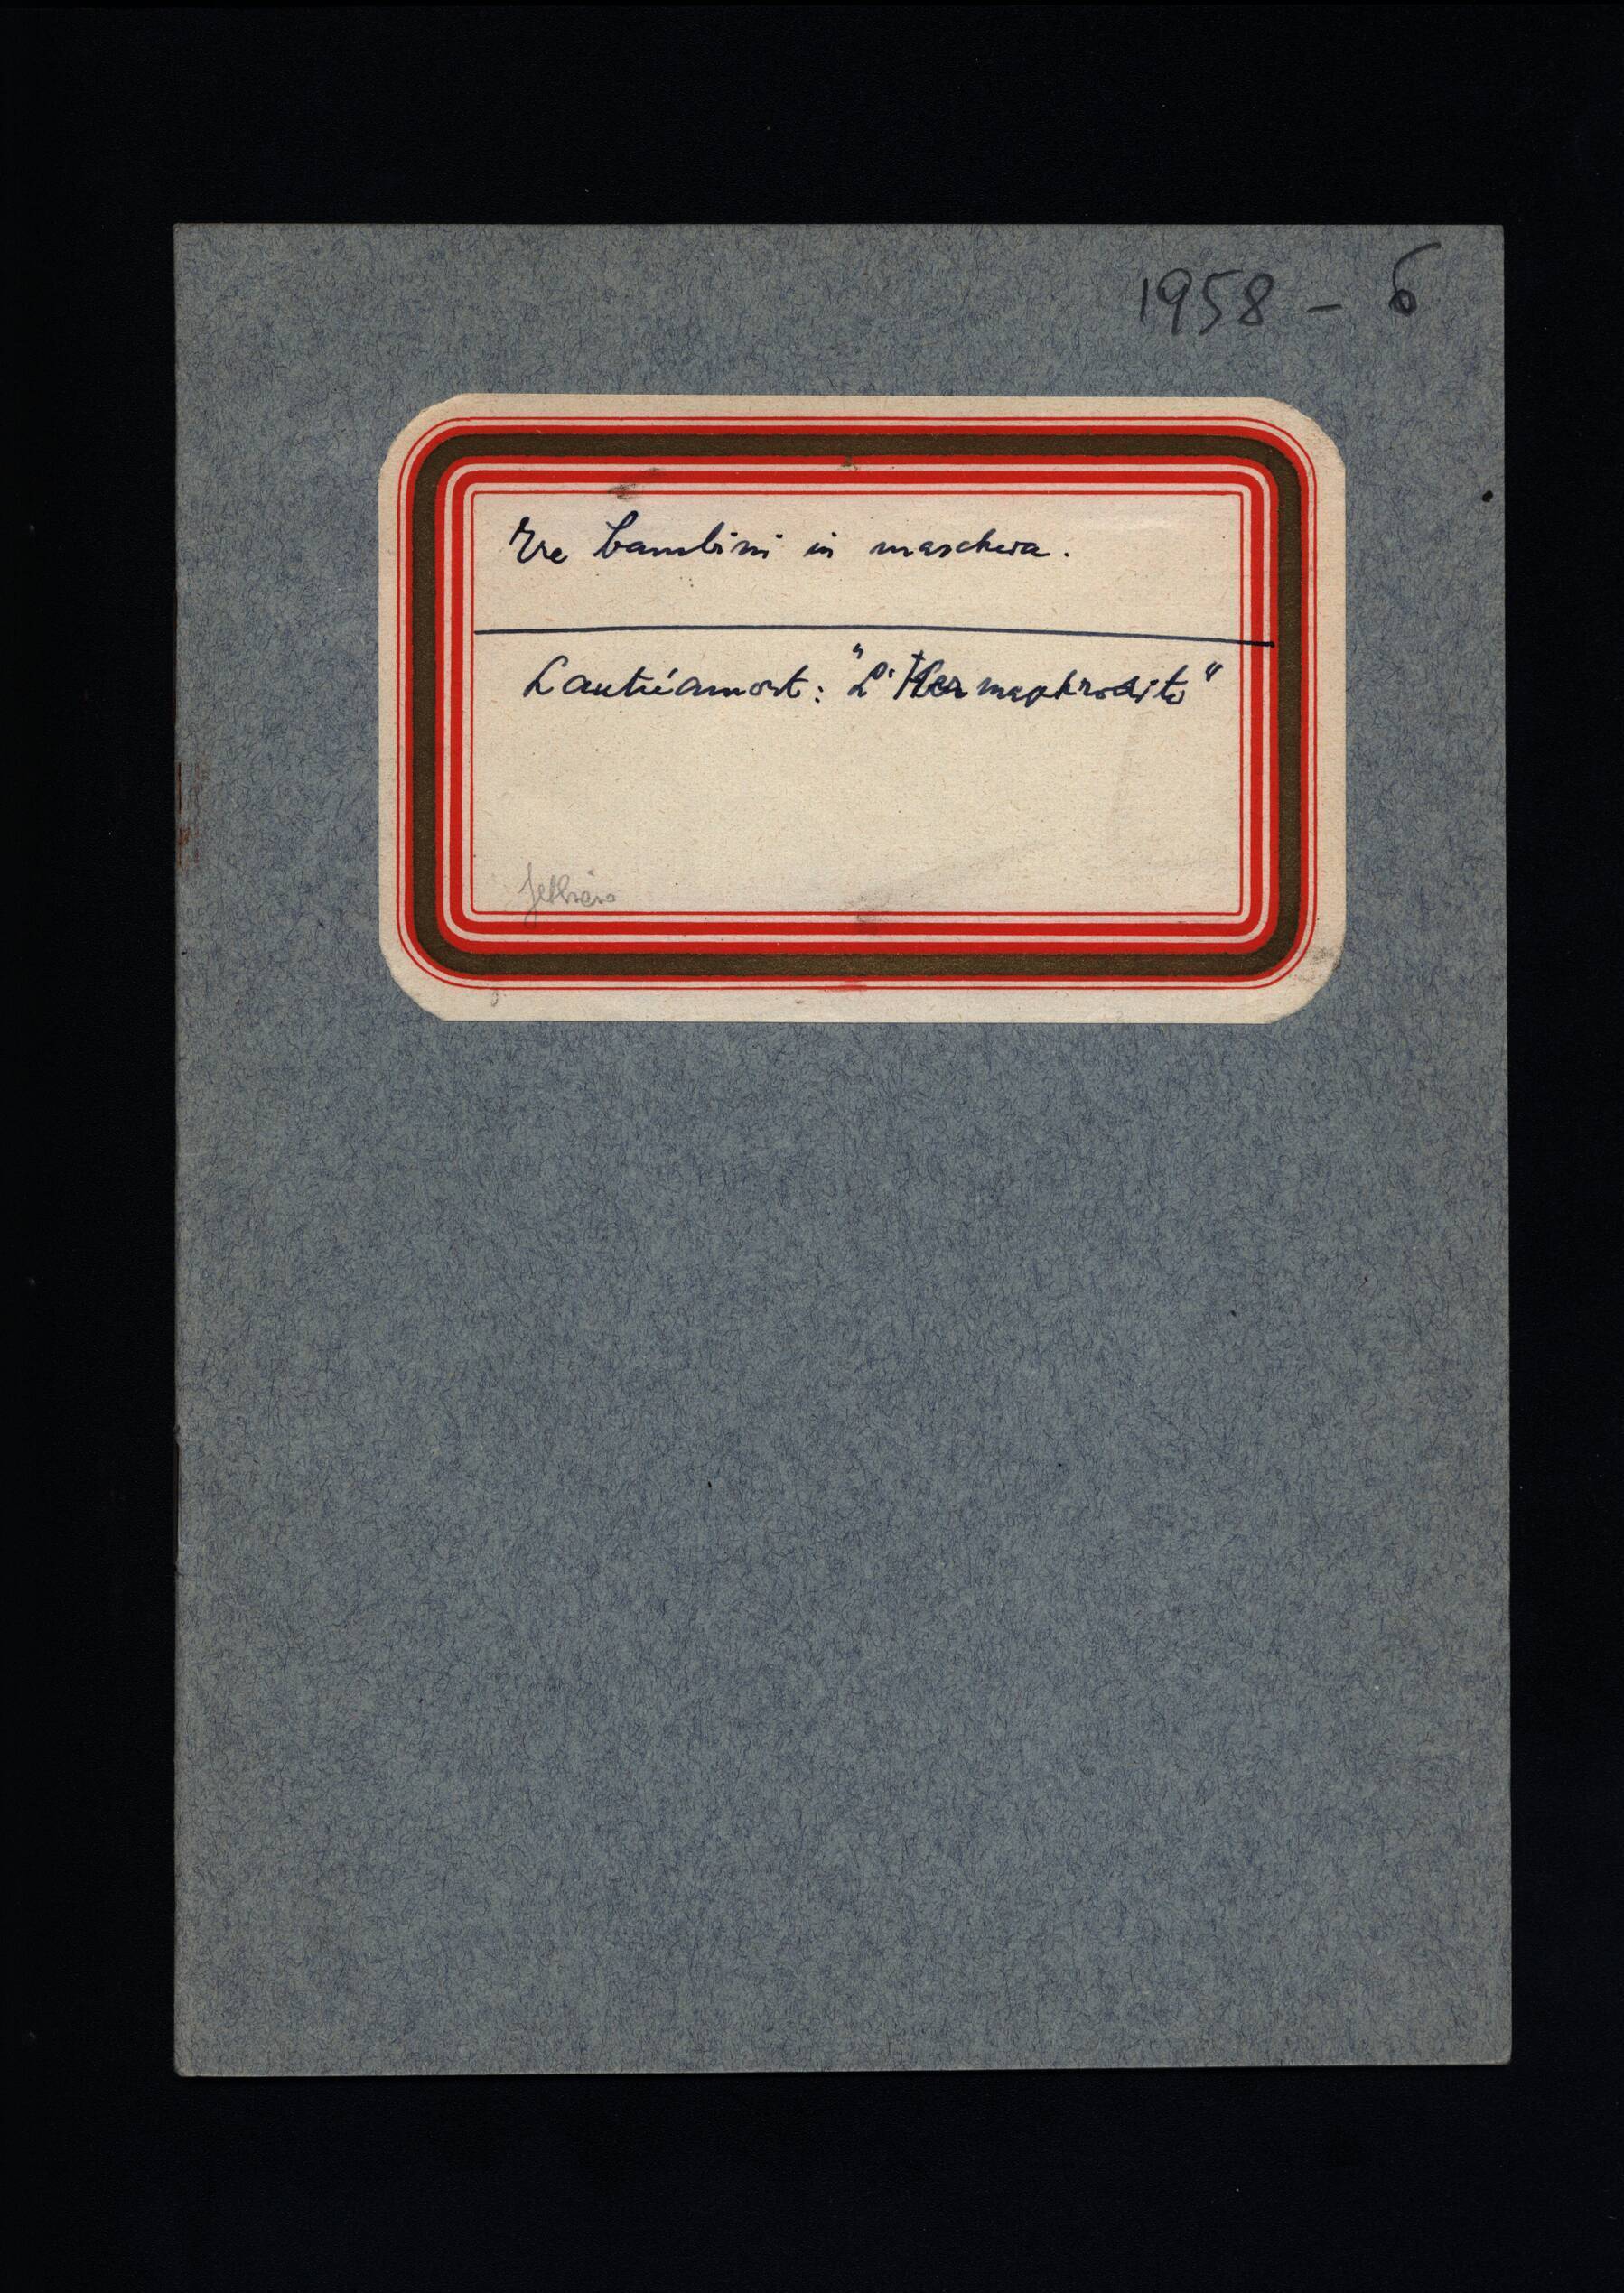 1958 - 6
Tre bambini in maschera.
Lautréamont: "L'Hermaphrodito"
febbraio